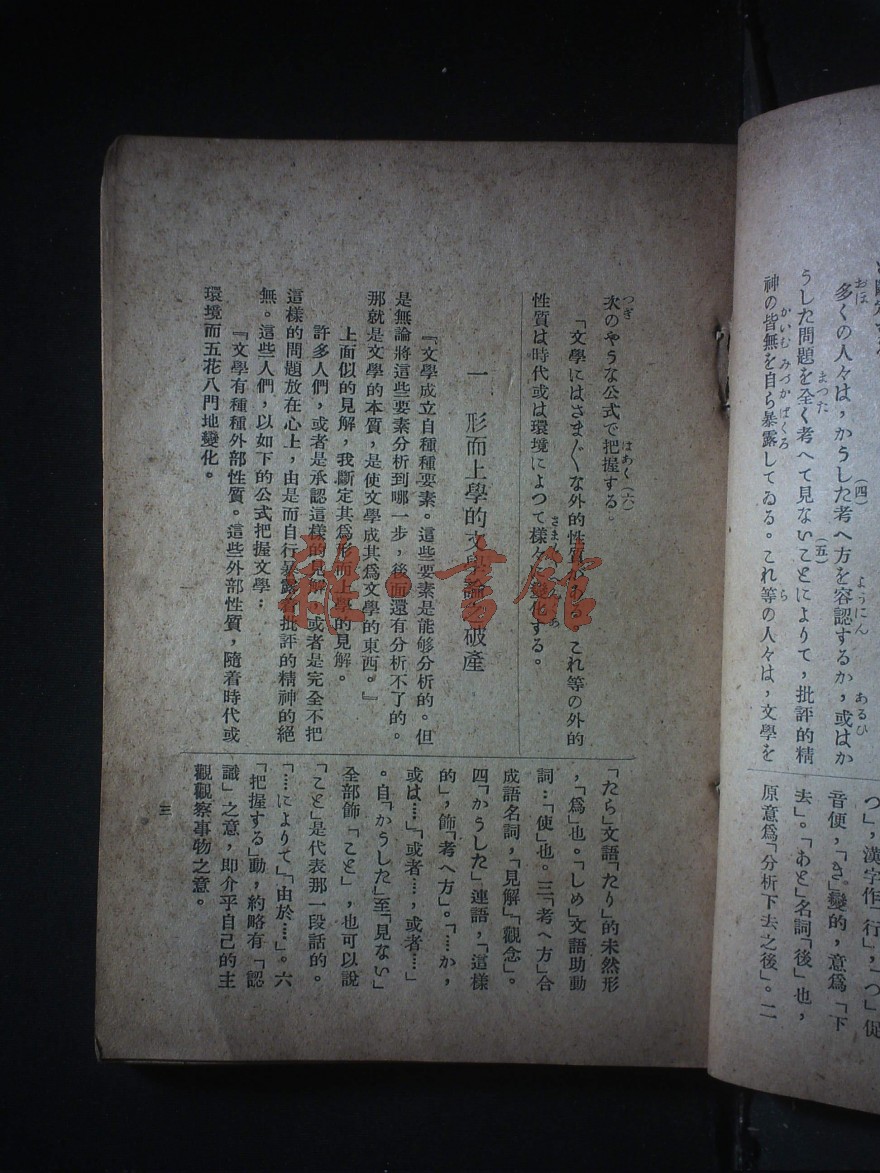 多くの人々は，かうした考へ方を容認するか，或はか
うした問題を全く考へて見ないことによりて，批評的精
神の皆無を自ら暴露してゐる。これ等の人々は，文學を
つ」，漢字作「行」，「つ」促
音便，「き」變的，意爲「下
去」。「あと」名詞「後」也，
原意爲「分析下去之後」。二
次のやうな公式で把握する。
「文學にはさまざまな外的性質がある。これ等の外的
性質は時代或は環境によつて樣々に變化する。
一 形而上學的文學論之破產
『文學成立自種種要素。這些要素是能够分析的。但
是無論將這些要素分析到哪一步，後面還有分析不了的。
那就是文學的本質，是使文學成其爲文學的東西。』
上面似的見解，我斷定其爲形而上學的見解。
許多人們，或者是承認這樣的見解，或者是完全不把
這樣的問題放在心上，由是而自行暴露着批評的精神的絕
無。這些人們，以如下的公式把握文學：
『文學有種種外部性質。這些外部性質，隨着時代或
環境而五花八門地變化。
「たら」文語「たり」的未然形
，「爲」也。「しめ」文語助動
詞…「使」也。三「考へ方」合
成語名詞，「見解」「觀念」。
四「かうした」連語，「這樣
的」，飾「考へ方」。「……か，
或は……」「或者…，或者…」
。自「かうした」至「見ない」
全部飾「こと」，也可以說
「こと」是代表那一段話的。
「……によりて」「由於…」。六
「把握する」動，約略有「認
識」之意，即介乎自己的主
觀觀察事物之意。
三
雜·書館